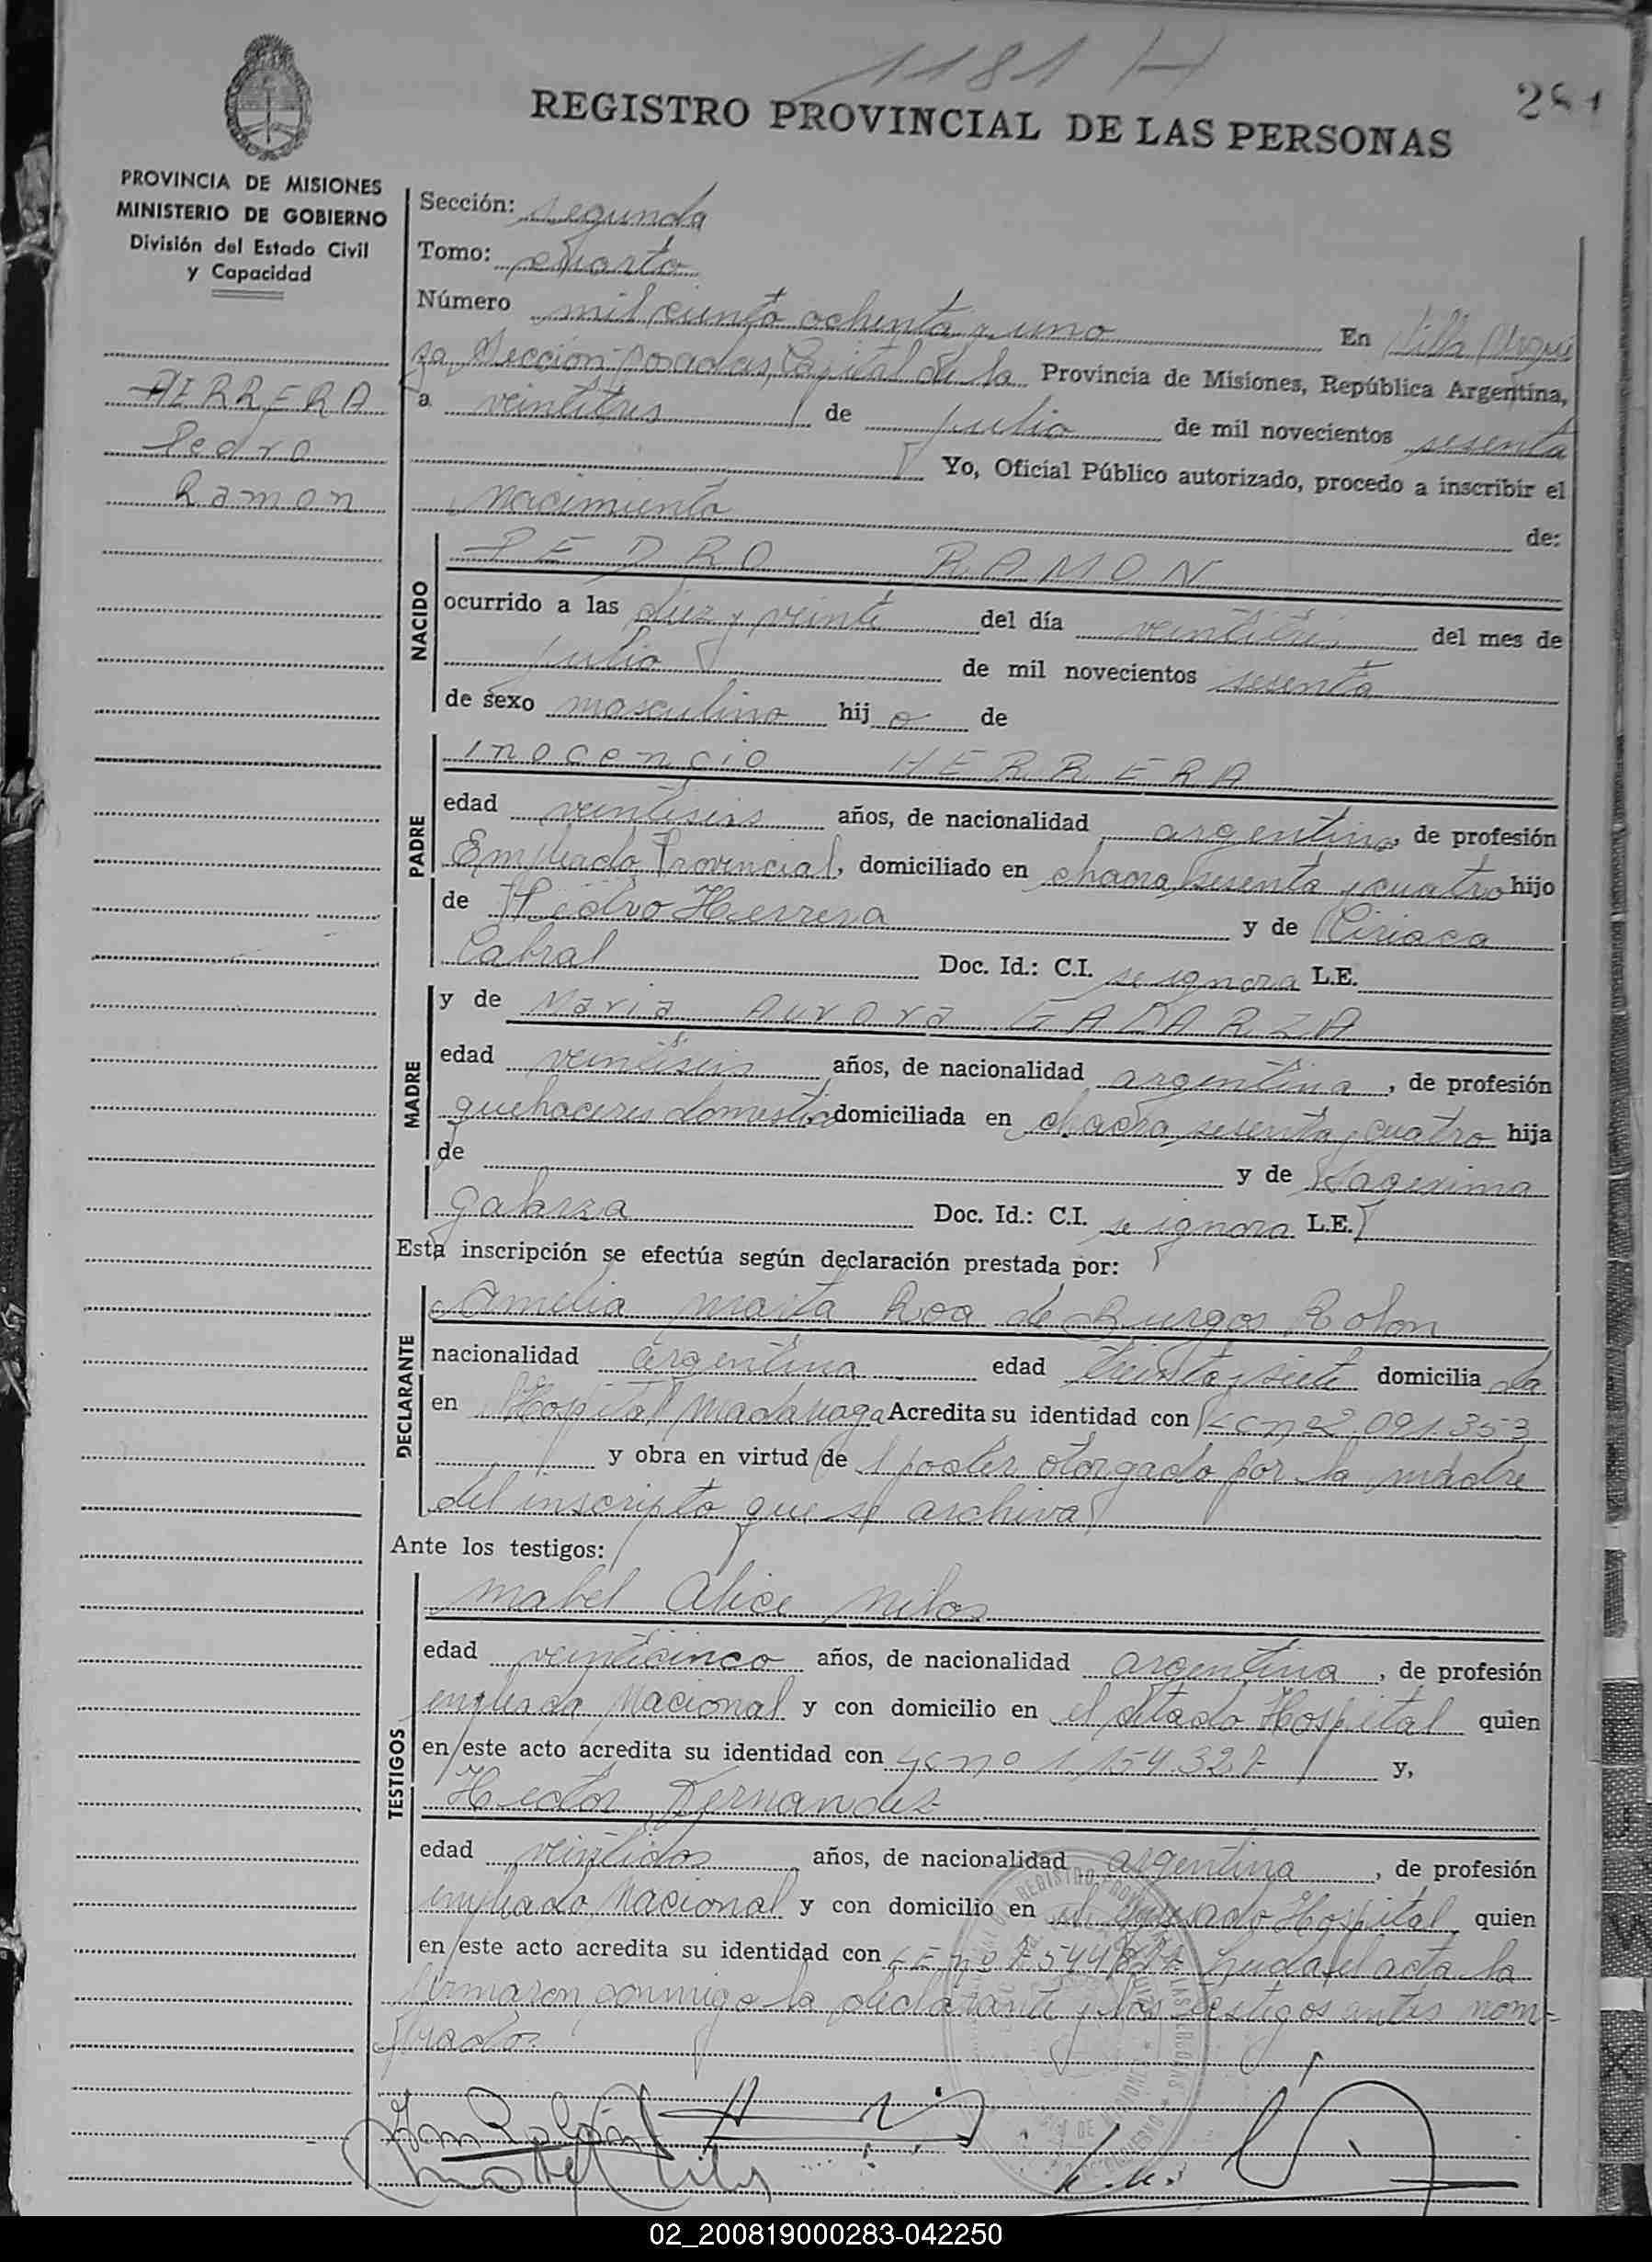 1181 H
281
REGISTRO PROVINCIAL DE LAS PERSONAS
PROVINCIA DE MISIONES
MINISTERIO DE GOBIERNO
División del Estado Civil
y Capacidad
HERRERA
Pedro
Ramon
Sección: segunda
Tomo: cuarto
Número mil ciento ochenta y uno En Villa Urqui
za Sección Posadas, Capital de la Provincia de Misiones, República Argentina,
a veintitres de julio de mil novecientos sesenta
Yo, Oficial Público autorizado, procedo a inscribir el
nacimiento de:
NACIDO
PEDRO RAMON
ocurrido a las diez y veinte del día veintitres del mes de
julio de mil novecientos sesenta
de sexo masculino hijo de
PADRE
Inocencio HERRERA
edad veintiseis años, de nacionalidad argentino, de profesión
Empleado Provincial, domiciliado en chacra sesenta y cuatro hijo
de Pedro Herrera y de Ciriaca
Cabral Doc. Id.: C.I. se ignora L.E.
MADRE
y de Maria Aurora GALARZA
edad veintiseis años, de nacionalidad argentina, de profesión
quehaceres domestico domiciliada en chacra sesenta y cuatro hija
de y de
Galarza Doc. Id.: C.I. se ignora L.E.
Esta inscripción se efectúa según declaración prestada por:
DECLARANTE
Amelia Marta Roa de Burgos Rolon
nacionalidad argentina edad treinta y siete domiciliada
en Hospital Madariaga Acredita su identidad con LC nº 2.091.353
y obra en virtud de poder otorgado por la madre
del inscripto que se archiva
Ante los testigos:
TESTIGOS
Mabel Alice Milos
edad veinticinco años, de nacionalidad argentina, de profesión
empleada Nacional y con domicilio en el citado Hospital quien
en este acto acredita su identidad con LC nº 1.154.327 y,
Hector Fernandez
edad veintidos años, de nacionalidad argentina, de profesión
empleado Nacional y con domicilio en el Hospital quien
en este acto acredita su identidad con LE nº Leida el acta la
firmaron conmigo la declarante y los testigos antes nom-
brados.
02_200819000283-042250